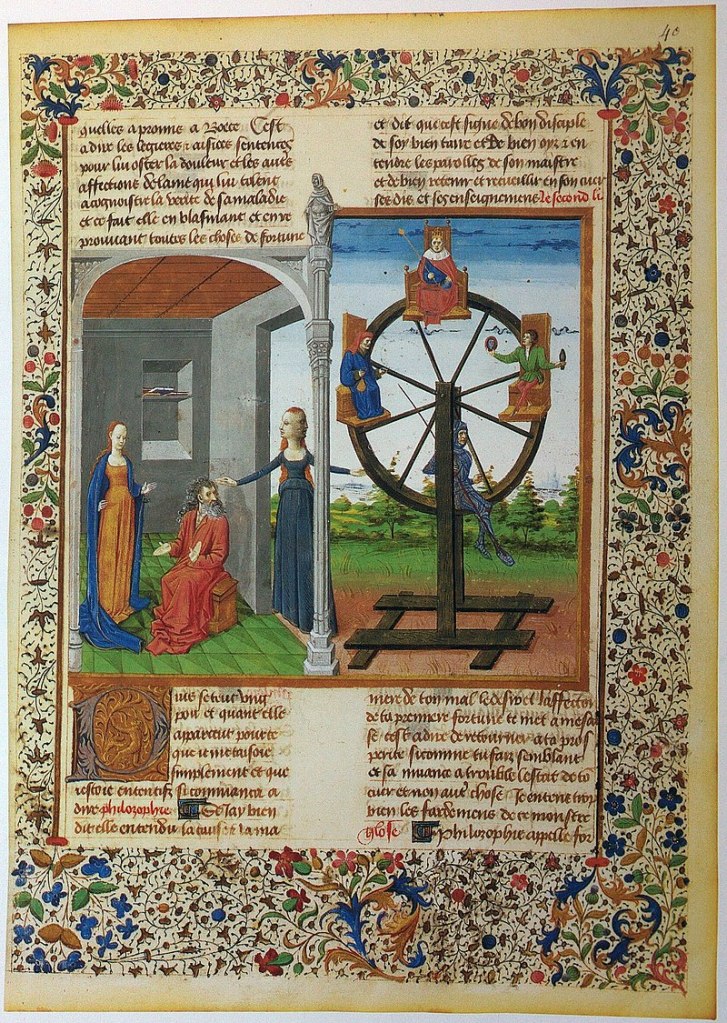 40
quelles a promis a Boece Cest
a dire les legieres
pour lui oster la douleur et les aules
affections de lame qui lui tolent
a cognoistre la verite de sa maladie
et ce fait elle en blasmant et en re
prouvant toutes les choses de fortune
et dit que cest signe de bon disciple
de soy bien taire et de bien oyr & en
tendre les parolles de son maistre
et de bien retenir et recueillir en son cuer
ses dis et ses enseignemens le second li
Puis se teut ung
pou et quant elle
apparceut pource
que ie me taisoie
simplement et que
iestoie ententif si commenca a
dire philozophie Se Jay bien
dit elle entendu la cause & la ma
niere de ton mal le desir et laffection
de ta premiere fortune te met a mesai
se cest a dire de retourner a ta pros
perite si comme tu fais semblant
et sa muance a trouble lestat de to
cuer et non autre chose Je entent trop
bien les fardemens de ce monstre
glose Philozophie appelle for